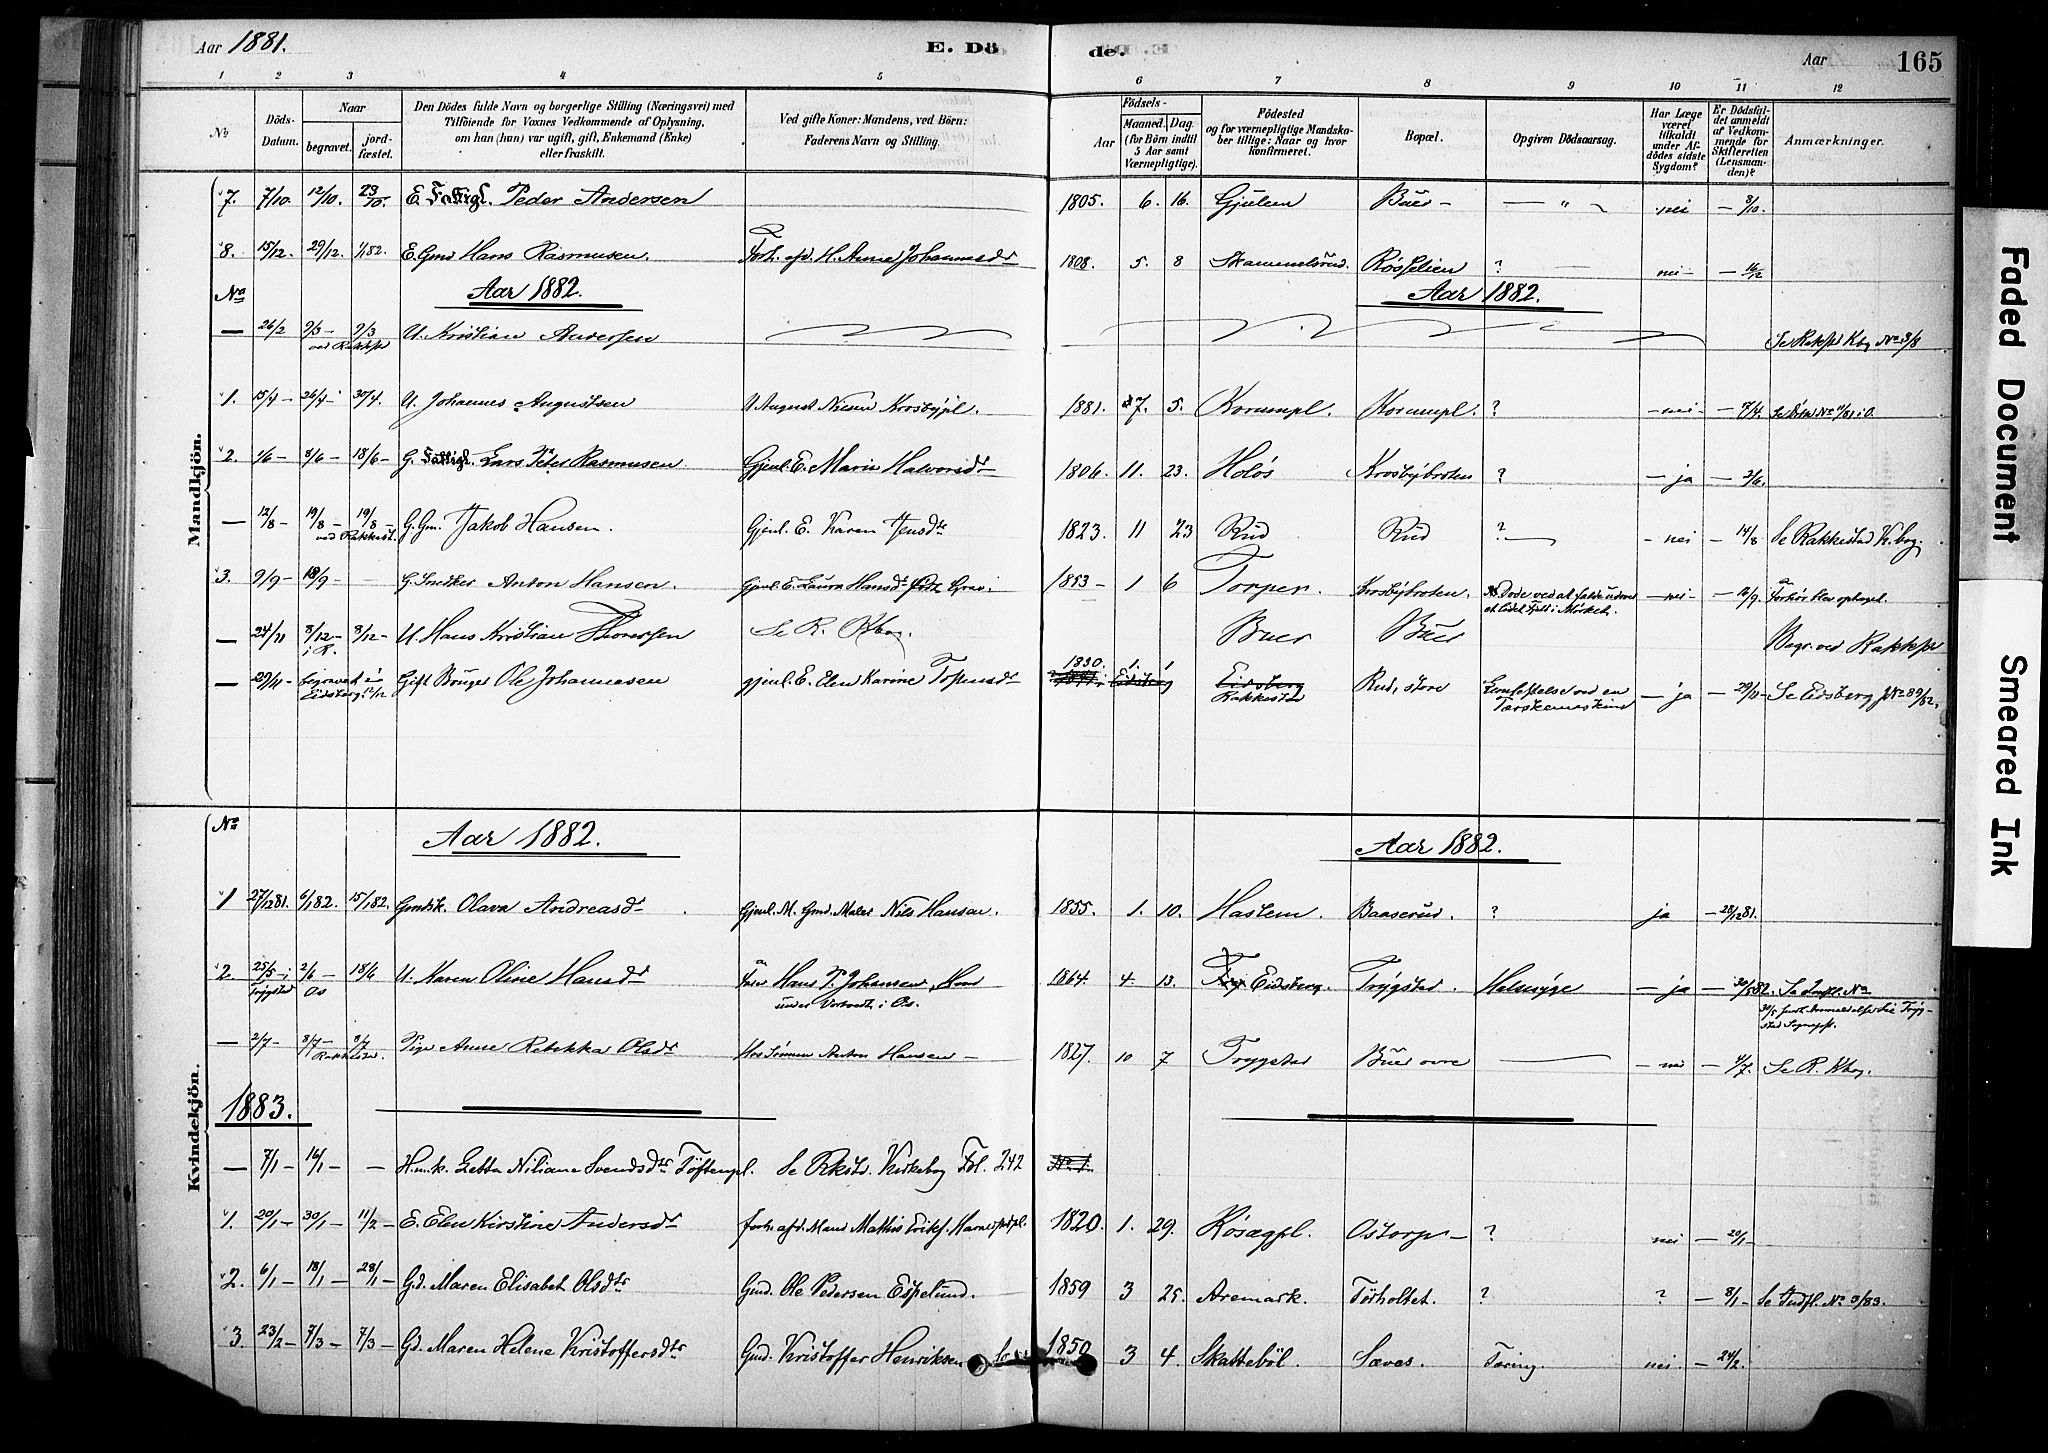 Aar 1881. E. Dö de. Aar 165
1 2 3 4 5 6 7 8 9 10 11 12
No Döds-Datum. Naar begravet. jord-fæstet. Den Dödes fulde Navn og borgerlige Stilling (Næringsvei) med Tilföiende for Voxnes Vedkommende af Oplysning, om han (hun) var ugift, gift, Enkemand (Enke) eller fraskilt. Ved gifte Koner: Mandens, ved Börn: Faderens Navn og Stilling. Födsels- Aar Maaned. Dag. (for Börn indtil 5 Aar samt Værnepligtige). Födested og for værnepligtige Mandska-ber tillige: Naar og hvor konfirmeret. Bopæl. Opgiven Dödsaarsag. Har Læge været tilkaldt under Af-dödes sidste Sygdom? Er Dödsfal-det anmeldt af Vedkom-mende for Skifteretten (Lensman-den)? Anmærkninger.
Mandkjön.
7. 7/10. 12/10. 23/10. E. Fattigl. Peder Andersen 1805. 6. 16. Gjulem Buer — — " nei — 8/10.
8. 15/12. 29/12. 1/1 82. E. Gmd Hans Rasmusen. Forh. afd. H. Anne Johannesdr 1808. 5. 8 Skammelsrud. Røsselien ? nei — 16/12
No Aar 1882. Aar 1882.
— 26/2 9/3 — 9/3 ved Rakkest U. Kristian Andersen Se Rakst Kbg No 3/8
1. 15/4 — 26/4 — 30/4. U. Johannes Augustsen U August Nilsen Krosbypl. 1881. 7. 5. Korumpl. Korumpl. ? — nei — 17/4.
2. 1/6 — 8/6 — 18/6 — G. Fattigl. Lars Peter Rasmusen Gjenl. E. Marie Halvorsdr 1806. 11. 23. Holøs Krosbybroten ? — ja — 2/6.
— 12/8 — 19/8 — 19/8 — ved Rakkest. G. Gm. Jakob Hansen. Gjenl. E. Karen Jensdtr 1823. 11 23 Rud Rud ? — nei — 14/8 Se Rakkestad K.bog.
3. 9/9 — 18/9 — G. Snedker Anton Hansen. Gjenl. E. Laura Hansdtr 1853 — 1 6 Torper Krosbybroten. Døde ved at falde udover et lidet Fjeld i Mørket. — nei — 16/9. Forhør blev optaget.
— 24/11 8/12 — 8/12 — i R. U. Hans Kristian Thoresen Se R. Kbog. Buer Buer Begr. ved Rakkest
— 29/11 — begravet i Eidsberg 12/12 Gift Bruger Ole Johannesen gjenl. E. Elen Karine Tostensdr 1830. 1. 1 Eidsberg Rakkestad Rud, store ved en Tærskemaskine — ja — 29/11 — Se Eidsberg No 89/82.
Kvindekjön.
No Aar 1882. Aar 1882.
1 27/12 81. 6/1 82. 15/1 82. Gmdsk. Olava Andreasdr Gjenl. M. Gmd. Maler Nils Hansen. 1855. 1. 10. Haslem. Baaserud. ? ja — 28/12 81.
2. 25/5 — i Trygstad 2/6 — Os 18/6 U. Karen Oline Hansdr Far Hans P. Johansen, Hovs under Os. 1864. 4. 13. Eidsberg. Trygstad. Halssyge — ja — 30/5 82. Se Indfl. No 30/5
— 2/7 — 8/7 — 8/7 Rakkestad. Pige Anne Rebekka Olsdr Hos Sønnen Anton Hansen — 1827. 10 7 Trygstad Buer øvre — nei — 4/7. Se R. Kbog.
1883.
— 7/1 — 16/1 — Hmk. Letta Niliane Svendsdtr Toftenpl. Se Rkstd. Kirkebog Fol. 242 No 1.
1. 20/1 — 30/1 — 11/2 — E. Elen Kirstine Andersdr forh. afd. Mand Mathis 1820. 1. 29. Kosægpl. Ostorp — ? nei — 20/1 —
2. 6/1 — 18/1 — 28/1 — Gd. Maren Elisabet Olsdtr Gmd. Ole Pedersen Espelund. 1859 3 25. Aremark. Torholtet. ? ? — 8/1 — Se Indfl. No 3/83.
3. 23/2 — 7/3 — 7/3 — Gd. Maren Helene Kristoffersdtr Gmd. Kristoffer Henriksen 1850 3 4. Skattebøl. Sæves. Tæring. nei. — 24/2.
Faded Document
Smeared Ink